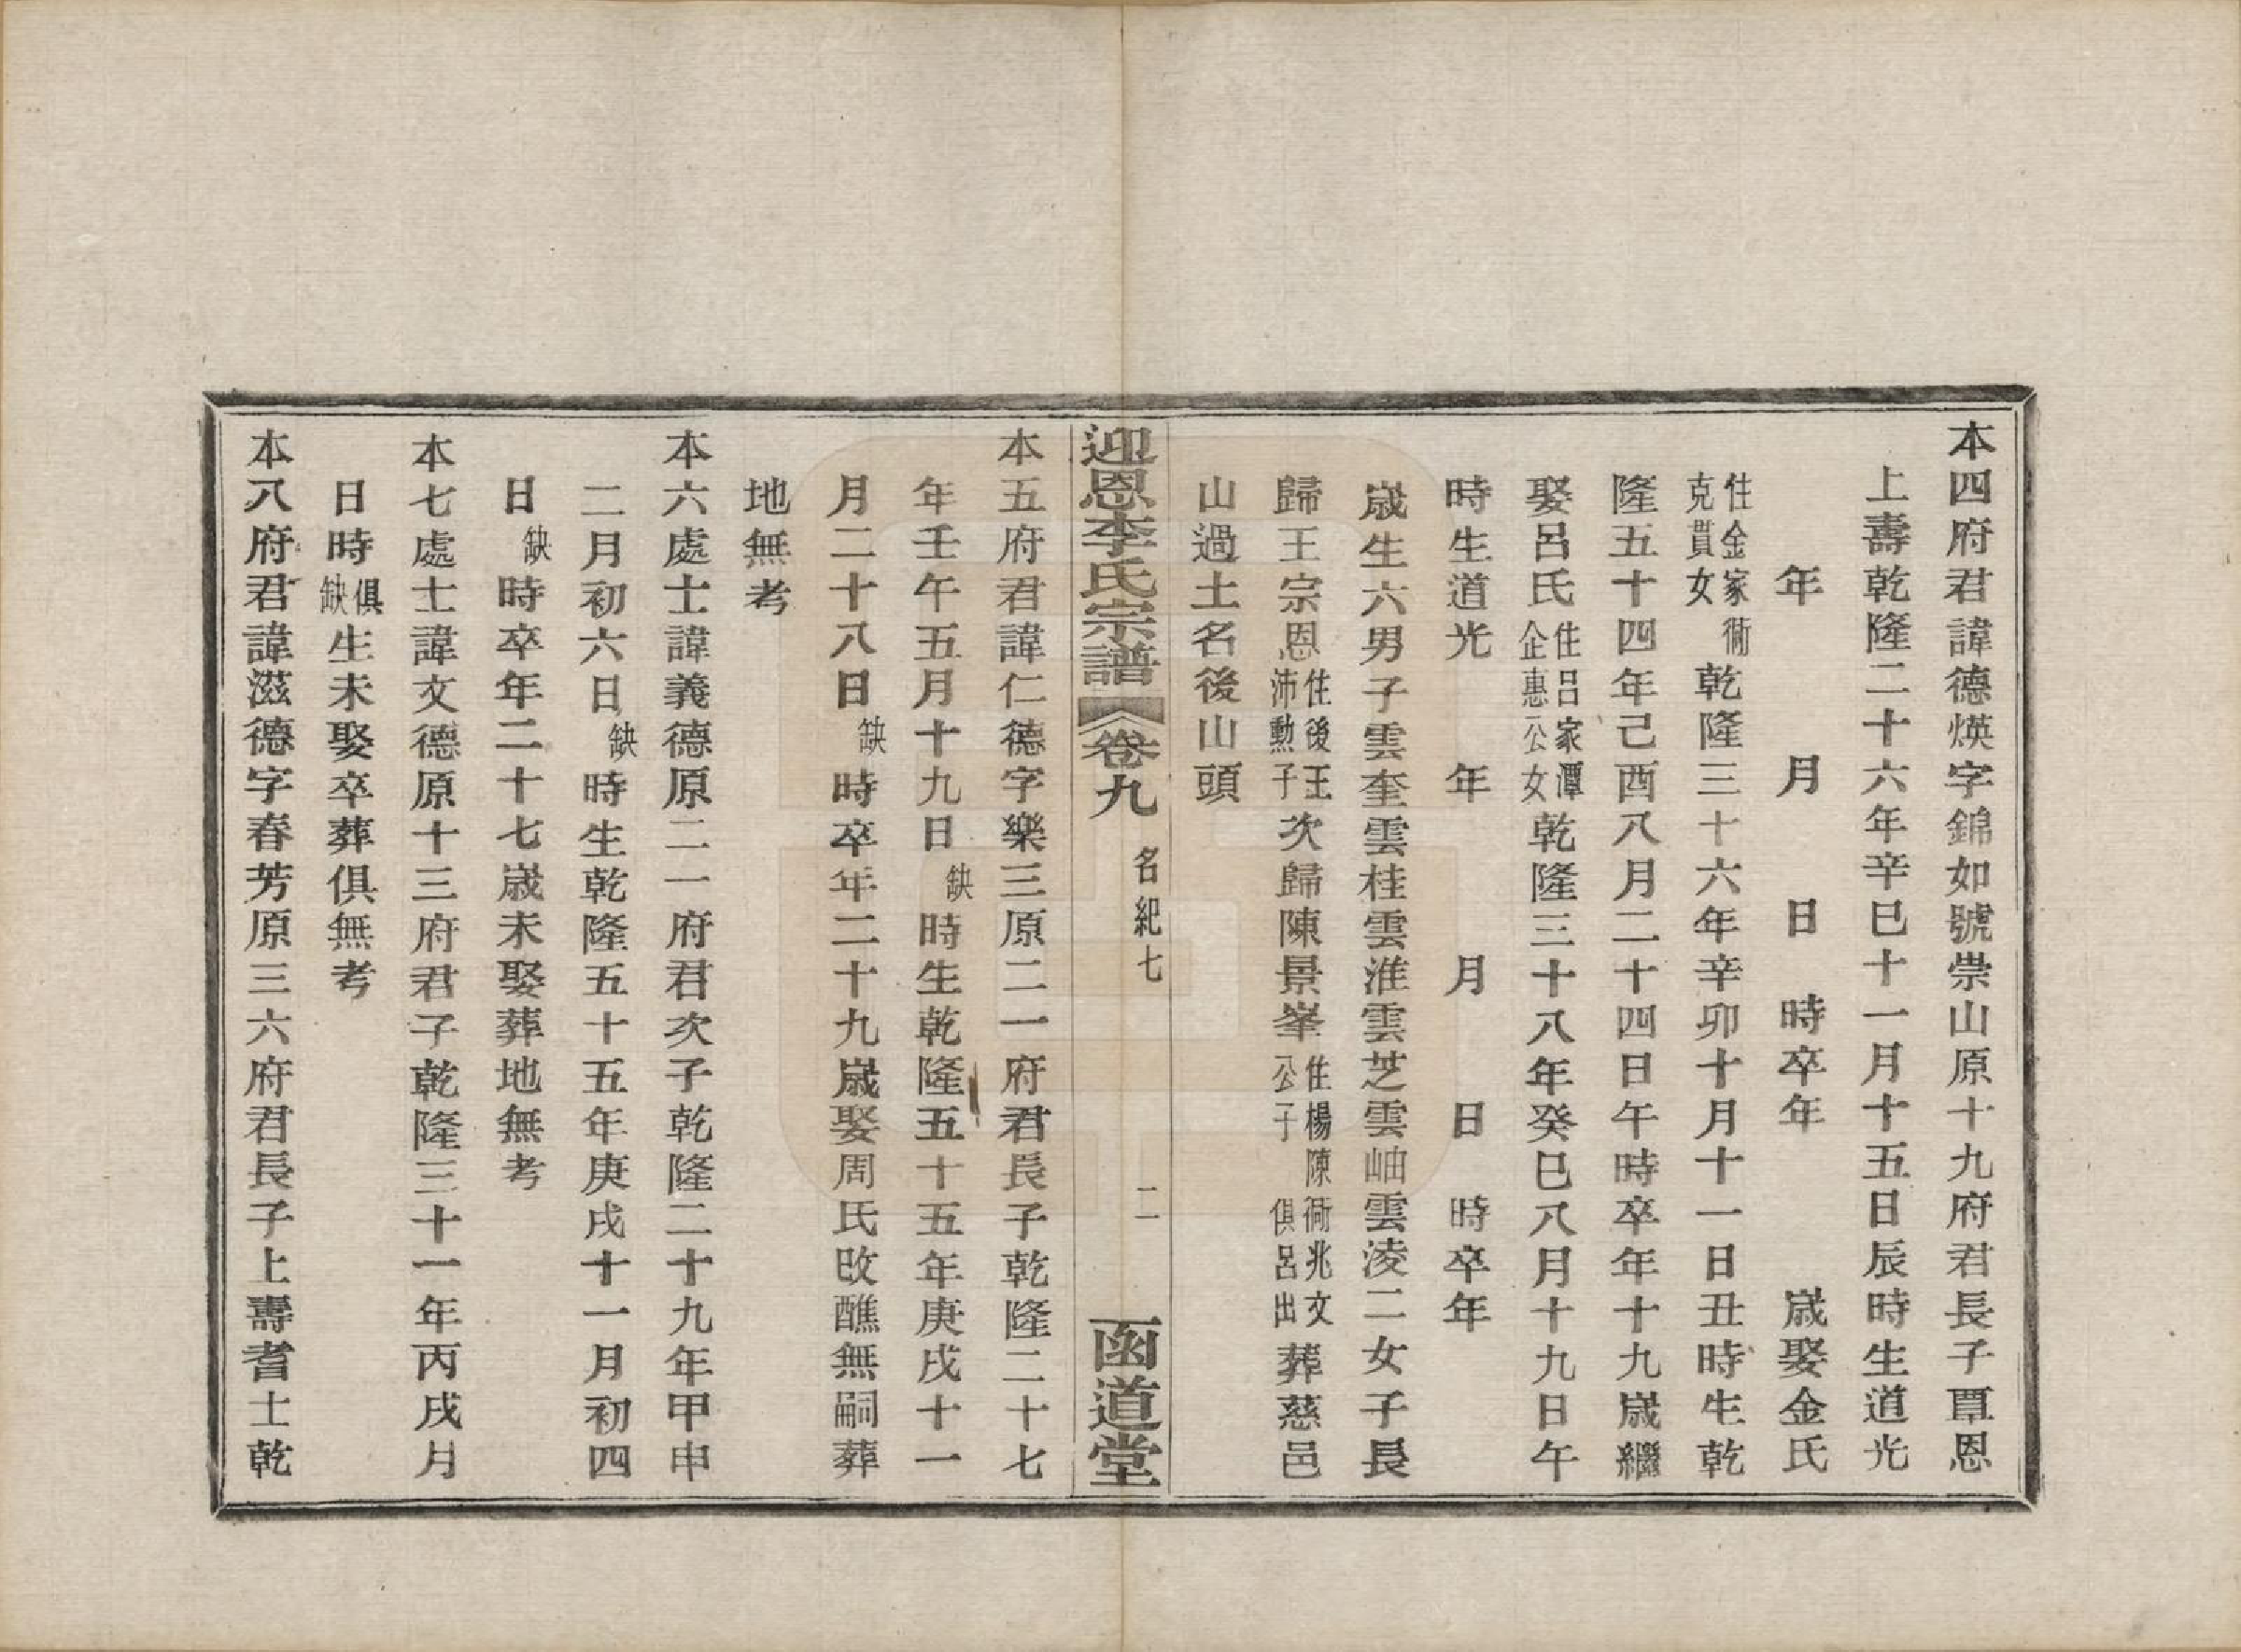 本四府君諱德煐字錦如號崇山原十九府君長子覃恩
上壽乾隆二十六年辛巳十一月十五日辰時生道光
年 月 日 時卒年 歲娶金氏
住金家衕克貫女乾隆三十六年辛卯十月十一日丑時生乾
隆五十四年己酉八月二十四日午時卒年十九歲繼
娶呂氏住呂家潭企惠公女乾隆三十八年癸巳八月十九日午
時生道光 年 月 日 時卒年
歲生六男子雲奎雲桂雲淮雲芝雲岫雲淩二女子長
歸王宗恩住後王沛勳子次歸陳景峯住楊陳衕兆文公子俱呂出葬慈邑
山過土名後山頭
迎恩李氏宗譜 卷九 名紀七 二 函道堂
本五府君諱仁德字樂三原二一府君長子乾隆二十七
年壬午五月十九日缺時生乾隆五十五年庚戌十一
月二十八日缺時卒年二十九歲娶周氏改醮無嗣葬
地無考
本六處士諱義德原二一府君次子乾隆二十九年甲申
二月初六日缺時生乾隆五十五年庚戌十一月初四
日缺時卒年二十七歲未娶葬地無考
本七處士諱文德原十三府君子乾隆三十一年丙戌月
日時俱缺生未娶卒葬俱無考
本八府君諱滋德字春芳原三六府君長子上壽耆士乾